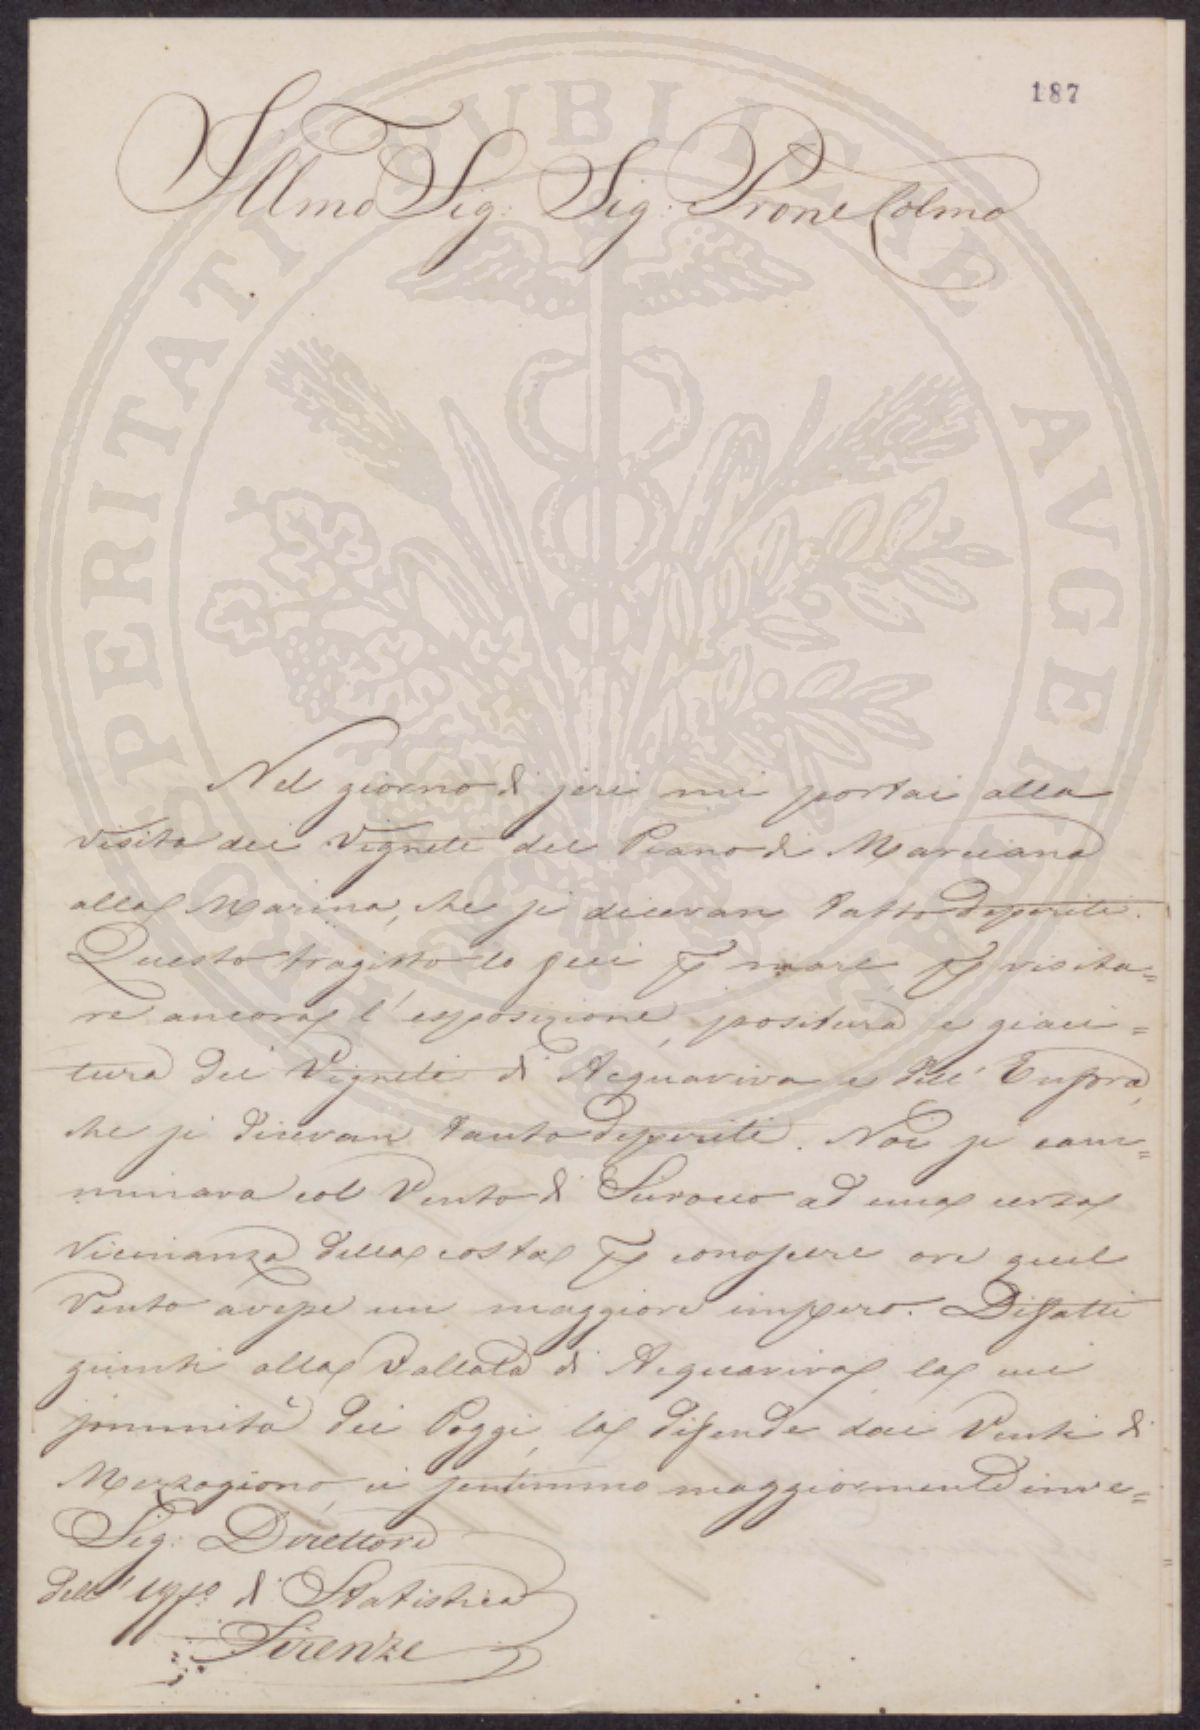 187
Illmo Sig: Sig: Prone Colmo
Nel giorno di jeri mi portai alla
visita dei Vigneti del Piano di Marciana
alla Marina, che si dicevan tatto deperiti.
Questo tragitto lo feci p mare p visita=
re ancora l'esposizione, positura e giaci=
tura dei Vigneti di Acquaviva e dell' Enfora,
che si dicevan tanto deperiti. Noi si cam=
minava col Vento di Sirocco ad una certa
Vicinanza della costa p conoscere ove quel
Vento avesse un maggiore impero. Diffatti
giunti alla Vallata di Acquaviva, la cui
sommità dei Poggi, la difende dai Venti di
Mezzogiorno, ci sentimmo maggiormente inve=
Sig: Direttore
dell' Uffo di Statistica
Firenze
PROSPERITATI PUBLICAE AVGENDAE